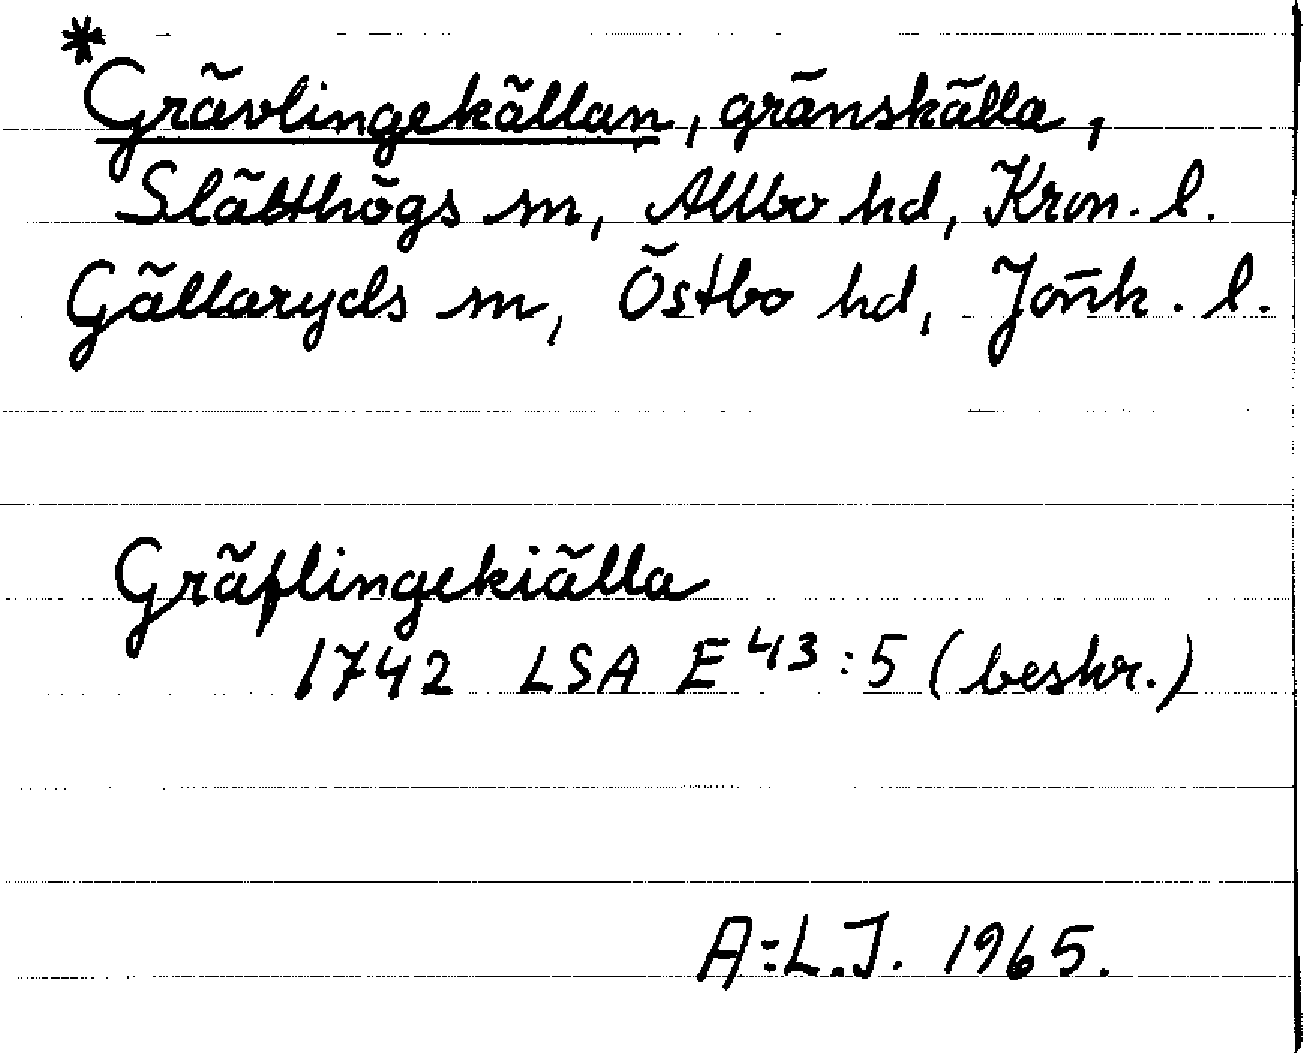 *Grävlingekällan, gränskälla,
Slätthögs sn, Allbo hd, Kron. l.
Gällaryds sn, Östbo hd, Jönk. l.
Gräflingekiälla
1742 LSA E 43:5 (beskr.)
A=L.J. 1965.